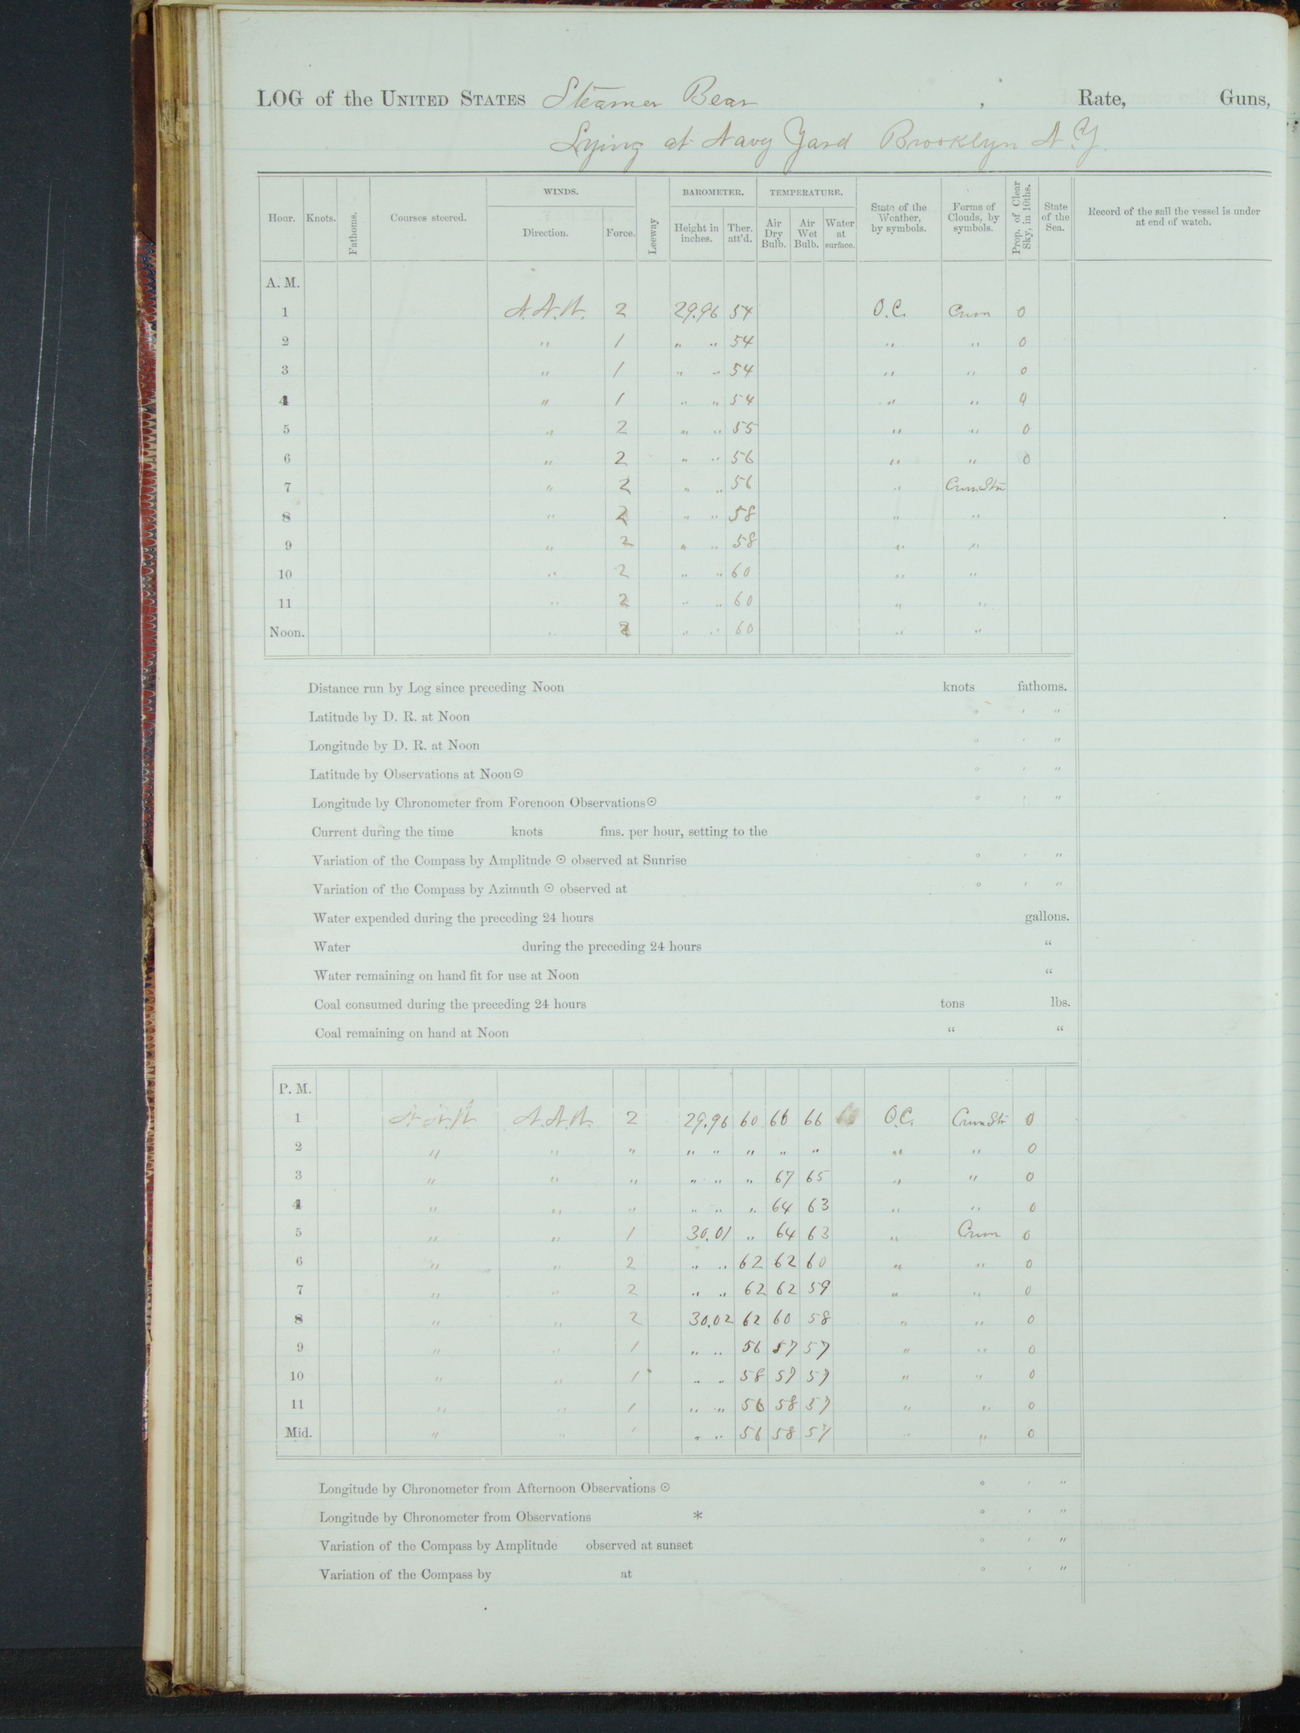 LOG of the UNITED STATES Steamer Bear , Rate, Guns,
Lying at Navy Yard Brooklyn N.Y.
Hour. Knots. Fathoms. Courses steered. WINDS. Direction. Force. Leeway BAROMETER. Height in inches. Ther. att'd. TEMPERATURE. Air Dry Bulb. Air Wet Bulb. Water at surface. State of the Weather, by symbols. Forms of Clouds, by symbols. Prop. of Clear Sky, in 10ths. State of the Sea. Record of the sail the vessel is under at end of watch.
A. M.
1 N.N.W. 2 29.96 54 O.C. Cum 0
2 " 1 " " 54 " " 0
3 " 1 " " 54 " " 0
4 " 1 " " 54 " " 0
5 " 2 " " 55 " " 0
6 " 2 " " 56 " " 0
7 " 2 " " 56 " Cum.Str
8 " 2 " " 58 " "
9 " 2 " " 58 " "
10 " 2 " " 60 " "
11 " 2 " " 60 " "
Noon. " 2 " " 60 " "
Distance run by Log since preceding Noon knots fathoms.
Latitude by D. R. at Noon ° ' "
Longitude by D. R. at Noon ° ' "
Latitude by Observations at Noon ☉ ° ' "
Longitude by Chronometer from Forenoon Observations ☉ ° ' "
Current during the time knots fms. per hour, setting to the
Variation of the Compass by Amplitude ☉ observed at Sunrise ° ' "
Variation of the Compass by Azimuth ☉ observed at ° ' "
Water expended during the preceding 24 hours gallons.
Water during the preceding 24 hours “
Water remaining on hand fit for use at Noon “
Coal consumed during the preceding 24 hours tons lbs.
Coal remaining on hand at Noon “ “
P. M.
1 N.N.W N.N.W. 2 29.96 60 66 66 O.C. Cum.Str 0
2 " " " " " " " " " " 0
3 " " " " " " 67 65 " " 0
4 " " " " " " 64 63 " " 0
5 " " 1 30.01 " 64 63 " Cum 0
6 " " 2 " " 62 62 60 " " 0
7 " " 2 " " 62 62 59 " " 0
8 " " 2 30.02 62 60 58 " " 0
9 " " 1 " " 56 57 57 " " 0
10 " " 1 " " 58 57 57 " " 0
11 " " 1 " " 56 58 57 " " 0
Mid. " " ' " " 56 58 57 " " 0
Longitude by Chronometer from Afternoon Observations ☉ ° ' "
Longitude by Chronometer from Observations * ° ' "
Variation of the Compass by Amplitude observed at sunset ° ' "
Variation of the Compass by at ° ' "